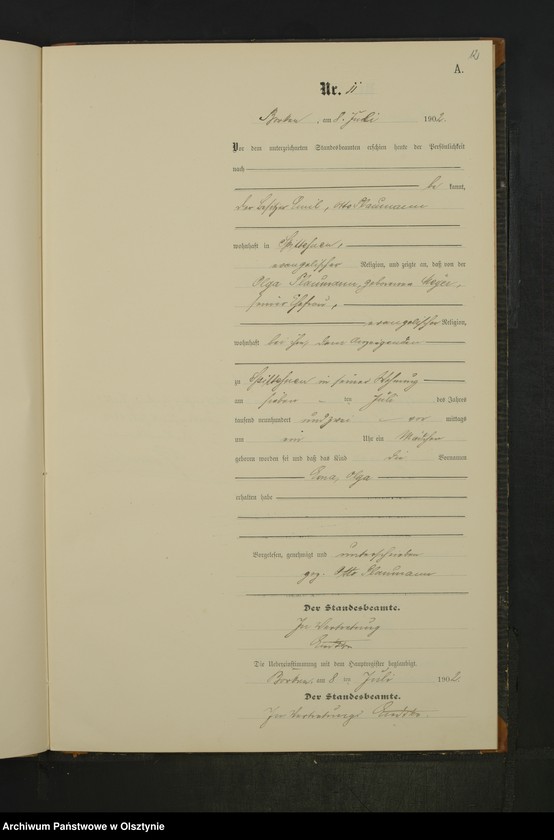 12
A.
Nr. 11
Borken, am 8. Juli 1902.
Vor dem unterzeichneten Standesbeamten erschien heute der Persönlichkeit
nach
be kannt,
der Besitzer Emil, Otto Plaumann
wohnhaft in
evangelischer Religion, und zeigte an, daß von der
Olga Plaumann, geborenen Meyer,
seiner Ehefrau,
evangelischer Religion,
wohnhaft bei ihm, dem Anzeigenden
zu in seiner Wohnung
am sieben ten Juli des Jahres
tausend neunhundert und zwei vor mittags
um ein Uhr ein Mädchen
geboren worden sei und daß das Kind die Vornamen
Olga
erhalten habe
Vorgelesen, genehmigt und unterschrieben
gez. Otto Plaumann
Der Standesbeamte.
In Vertretung
Die Uebereinstimmung mit dem Hauptregister beglaubigt.
Borken, am 8 ten Juli 1902.
Der Standesbeamte.
In Vertretung
Archiwum Państwowe w Olsztynie